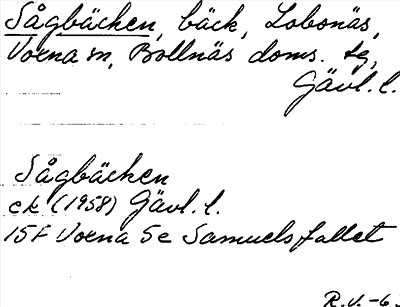 Sågbäcken, bäck, Lobonäs,
Voxna sn, Bollnäs doms. tg,
Gävl. l.
Sågbäcken
ek (1958) Gävl. l.
15F Voxna 5e Samuelsfallet
R.V. -63